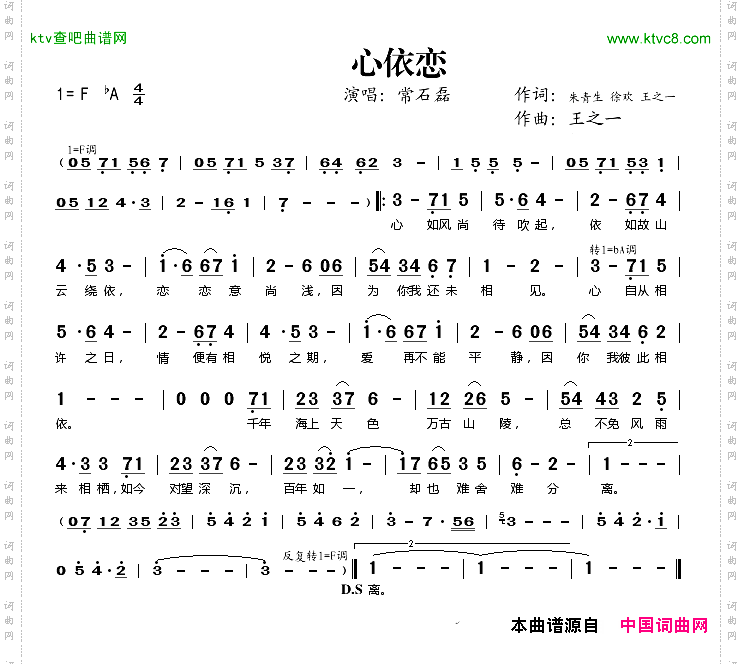 ktv查吧曲谱网 www.ktvc8.com
心依恋
1=F ♭A 4/4 演唱：常石磊 作词：朱青生 徐欢 王之一
作曲：王之一
1=F调
(05 71 56 7 | 05 71 5 37 | 64 62 3 - | 1 5 5 5 - | 05 71 53 1 |
05 12 4·3 | 2 - 16 1 | 7 - - - ) ‖: 3 - 71 5 | 5·6 4 - | 2 - 67 4 |
心 如风 尚 待 吹 起， 依 如故 山
转1=bA调
4·5 3 - | 1·6 67 1 | 2 - 6 06 | 54 34 6 7 | 1 - 2 - | 3 - 71 5 |
云 绕 依， 恋 恋 意 尚 浅，因 为 你我 还 未 相 见。 心 自从 相
5·6 4 - | 2 - 67 4 | 4·5 3 - | 1·6 67 1 | 2 - 6 06 | 54 34 6 2 |
许 之 日， 情 便有 相 悦 之 期， 爱 再不 能 平 静，因 你 我彼 此 相
1 - - - | 0 0 0 71 | 23 37 6 - | 12 26 5 - | 54 43 2 5 |
依。 千年 海上 天 色 万古 山 陵， 总 不免 风 雨
2
4·3 3 71 | 23 37 6 - | 23 32 1 - | 17 65 3 5 | 6 - 2 - | 1 - - - |
来 相 栖，如今 对望 深 沉， 百年 如 一， 却也 难 舍 难 分 离。
(07 12 35 23 | 5 4 2 1 | 5 4 6 2 | 3 - 7·56 | 5 3 - - - | 5 4 2·1 |
反复转1=F调 2
0 5 4·2 | 3 - - - | 3 - - - ) ‖ 1 - - - | 1 - - - | 1 - - - ‖
D.S 离。
本曲谱源自 中国词曲网
词曲网